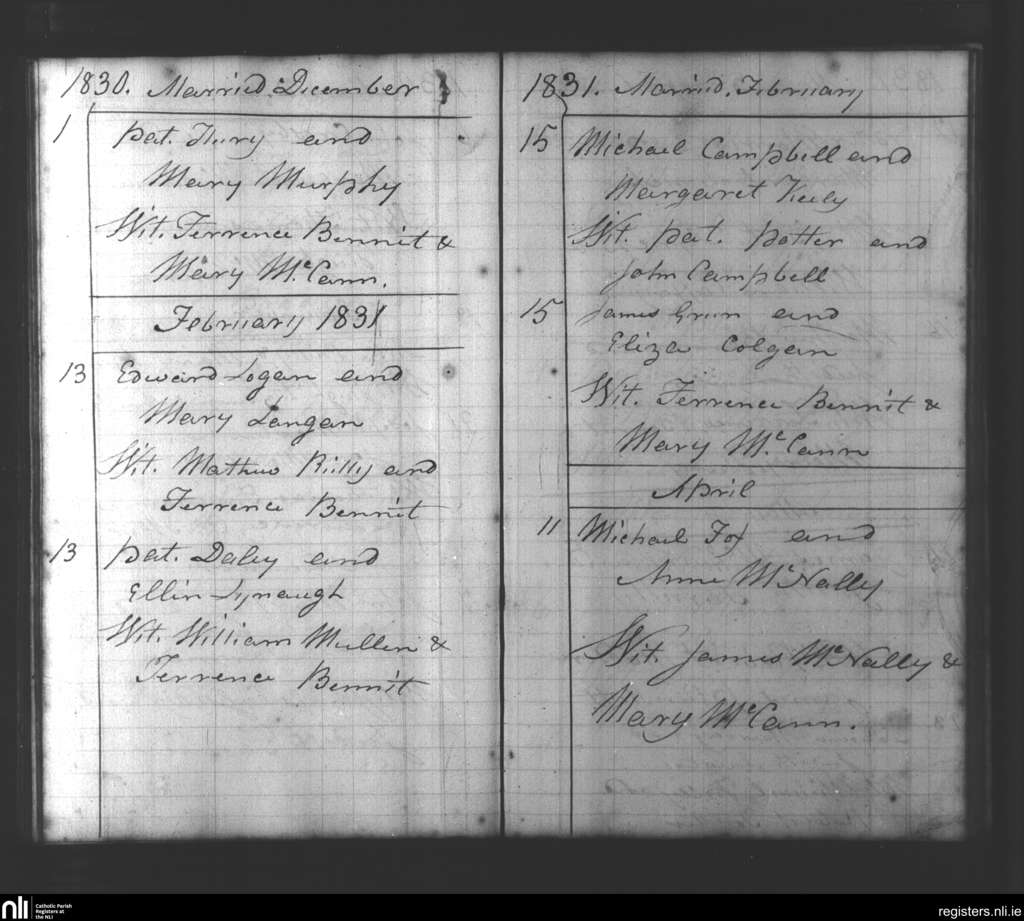 1830. Married December
1
Pat. Flury and
Mary Murphy
Wit. Terrence Bennit &
Mary McCann.
February 1831
13 Edward Logan and
Mary Langan
Wit. Mathew Riilly and
Terrence Bennit
13 Pat. Daley and
Ellin Lynaugh
Wit. William Mullin &
Terrence Bennit
1831. Married. February
15 Michael Campbell and
Margaret Keely
Wit. Pat. Potter and
John Campbell
15 James Grun and
Eliza Colgan
Wit. Terrence Bennit &
Mary McCann
April
11 Michael Fox and
Anne McNally
Wit. James McNally &
Mary McCann.
nli Catholic Parish
Registers at
the NLI
registers.nli.ie